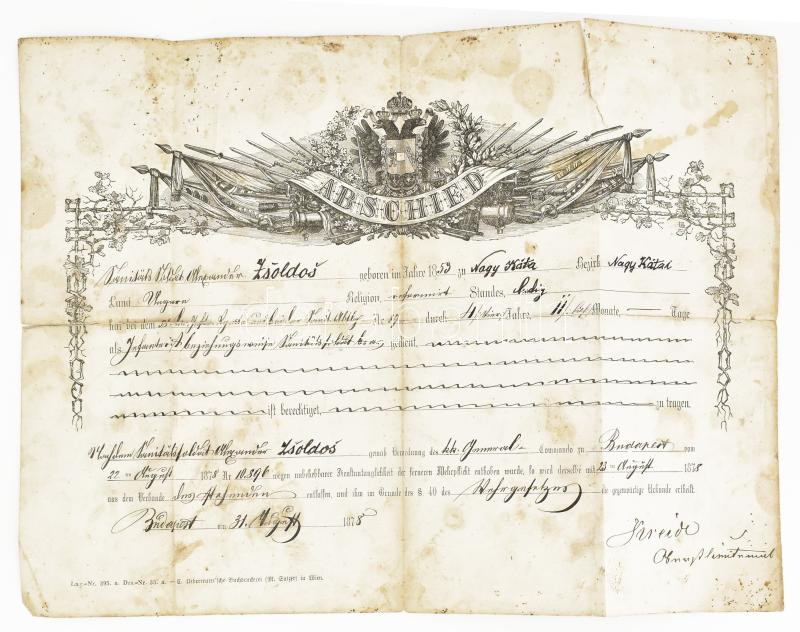 ABSCHIED
Sanitäts Soldat Alexander Zsoldos geboren im Jahre 1853 zu Nagy Káta Bezirk Nagy Kátai
Land Ungarn Religion, reformirt Standes, ledig
hat bei dem Sanit. Abthlg Nr 19 durch 4/vier/ Jahre, 11/ Monate, Tage
als Infanterist beziehungsweise Sanitätssoldat gedient,
ist berechtiget, zu tragen.
Nachdem Sanitätssoldat Alexander Zsoldos gemäß Verordnung des k.k. General- Commando zu Budapest vom
22ten August 1878 Nr 10.896 wegen unbehebbarer Diensttauglichkeit der ferneren Wehrpflicht enthoben wurde, so wird derselbe mit 23ten August 1878
aus dem Verbande des stehenden entlassen, und ihm im Grunde des § 40 des Wehrgesetzes die gegenwärtige Urkunde ertheilt.
Budapest am 31. August 1878
Kreide
Oberstlieutenant
Lag.-Nr. 395. a. Drs.-Nr. 35. a. — C. Ueberreuter'sche Buchdruckerei (M. Salzer) in Wien.